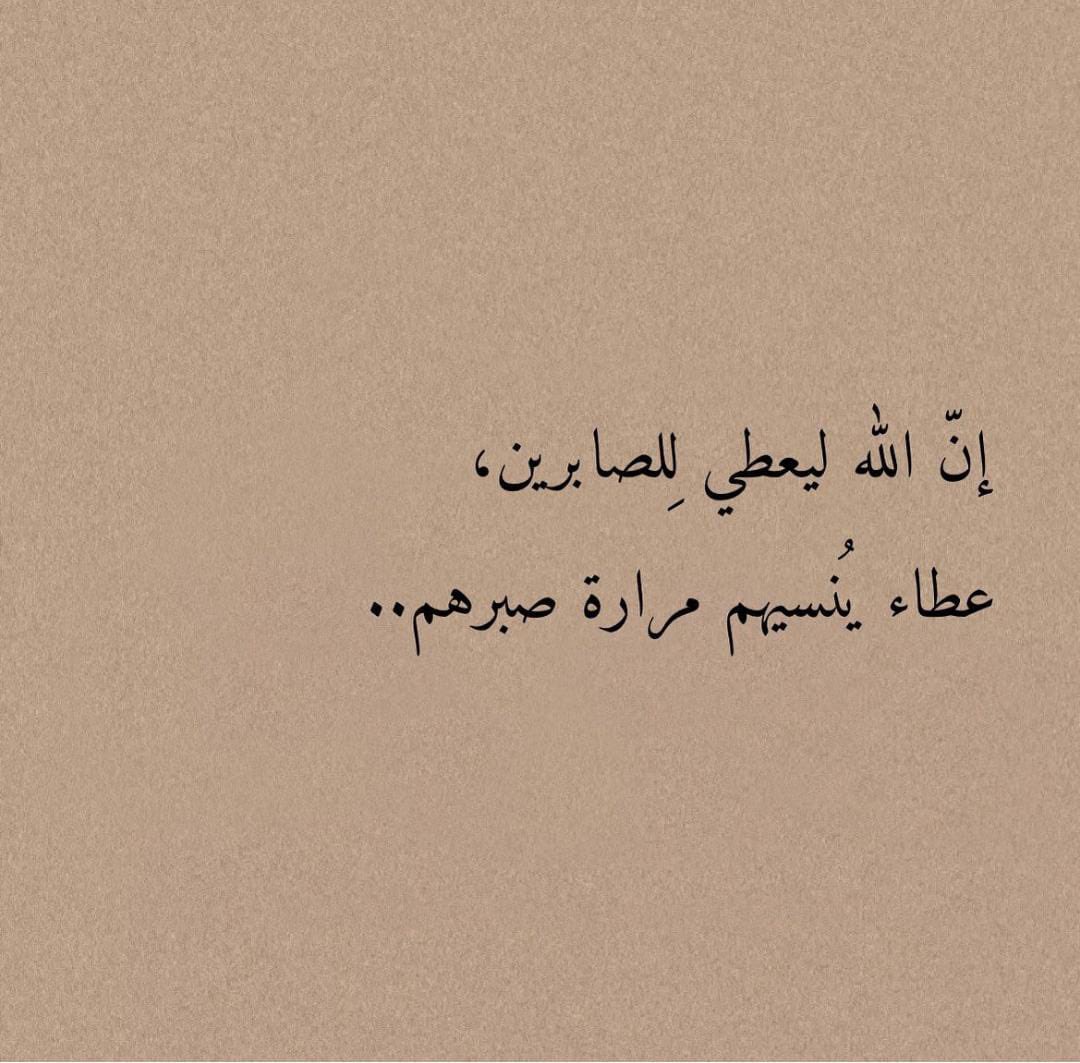 إنّ الله ليعطي لِلصابرين،
عطاء يُنسيهم مرارة صبرهم..